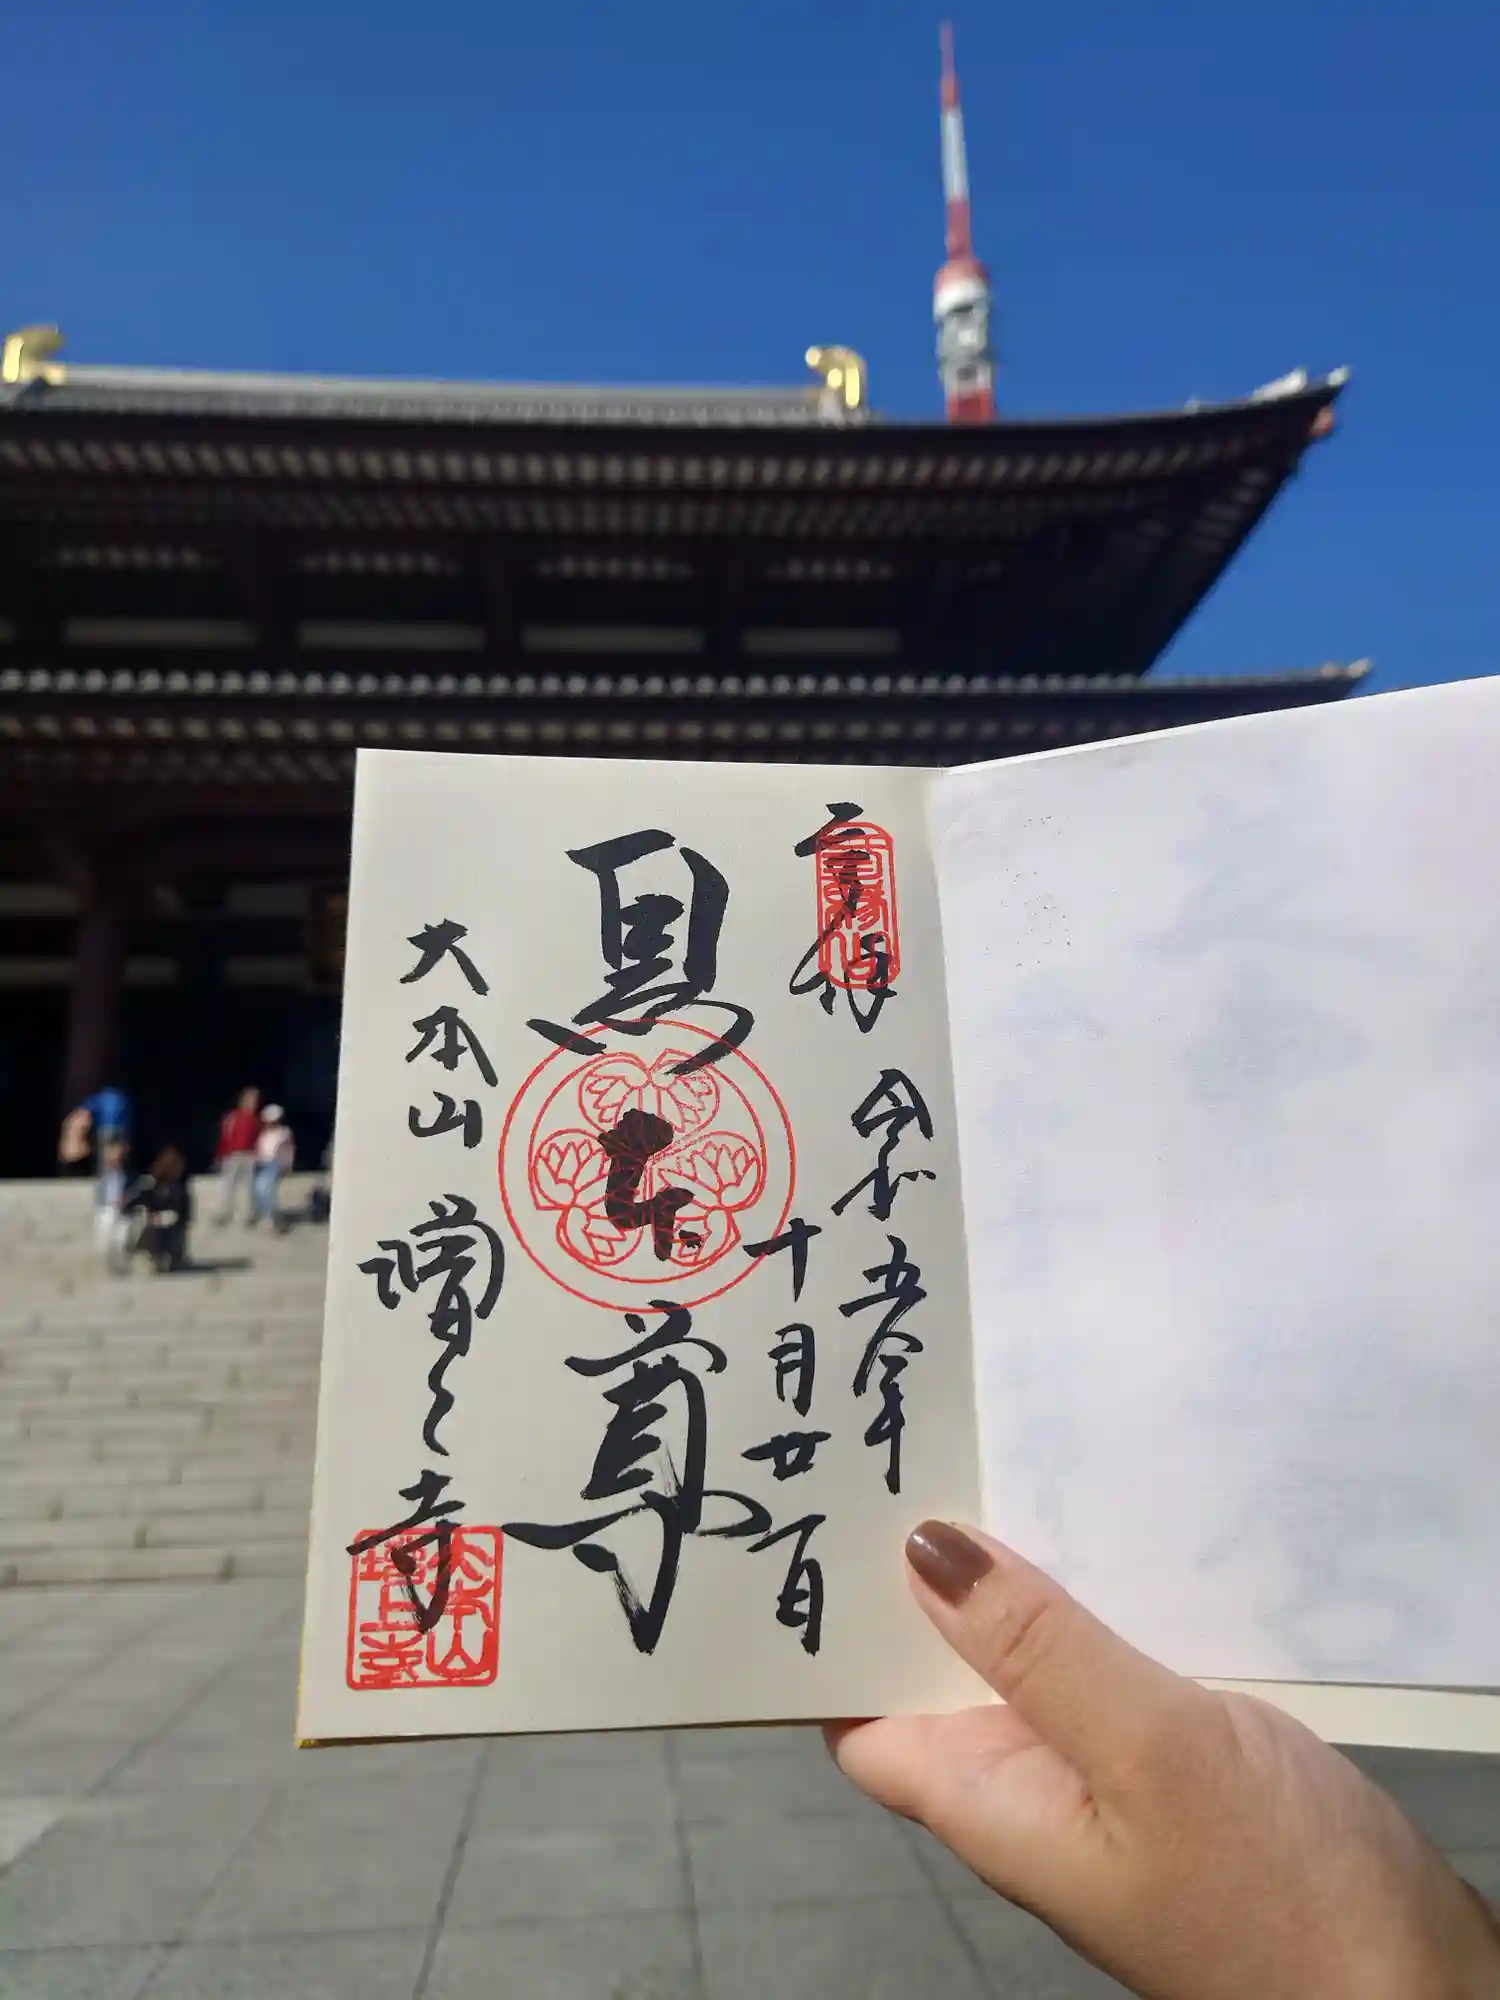 奉拝
令和五年
十月廿一日
黒本尊
大本山 増上寺
大本山
増上寺